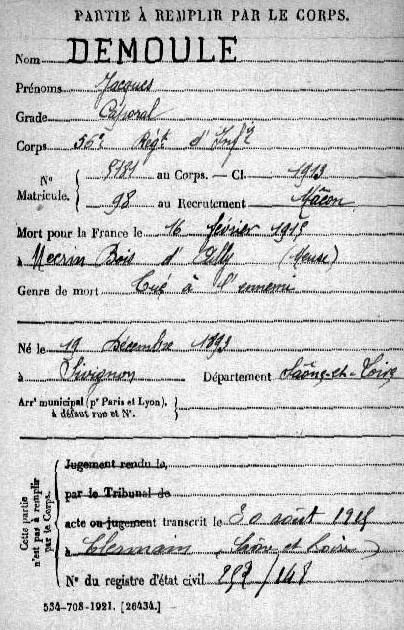 PARTIE À REMPLIR PAR LE CORPS.
Nom DEMOULE
Prénoms Jacques
Grade Caporal
Corps 56e Régt d'Infie
N° Matricule. { 5181 au Corps. — Cl. 1913
98 au Recrutement Mâcon
Mort pour la France le 16 février 1915
à Mecrin Bois d'Ailly (Meuse)
Genre de mort Tué à l'ennemi
Né le 19 Décembre 1893
à Sivignon Département Saône-et-Loire
Arrt municipal (pr Paris et Lyon), à défaut rue et N°. {
Cette partie n'est pas à remplir par le Corps. {
Jugement rendu le
par le Tribunal de
acte ou jugement transcrit le 30 août 1915
à Clermain (Saône et Loire)
N° du registre d'état civil 292/148
534-708-1921. [26434.]